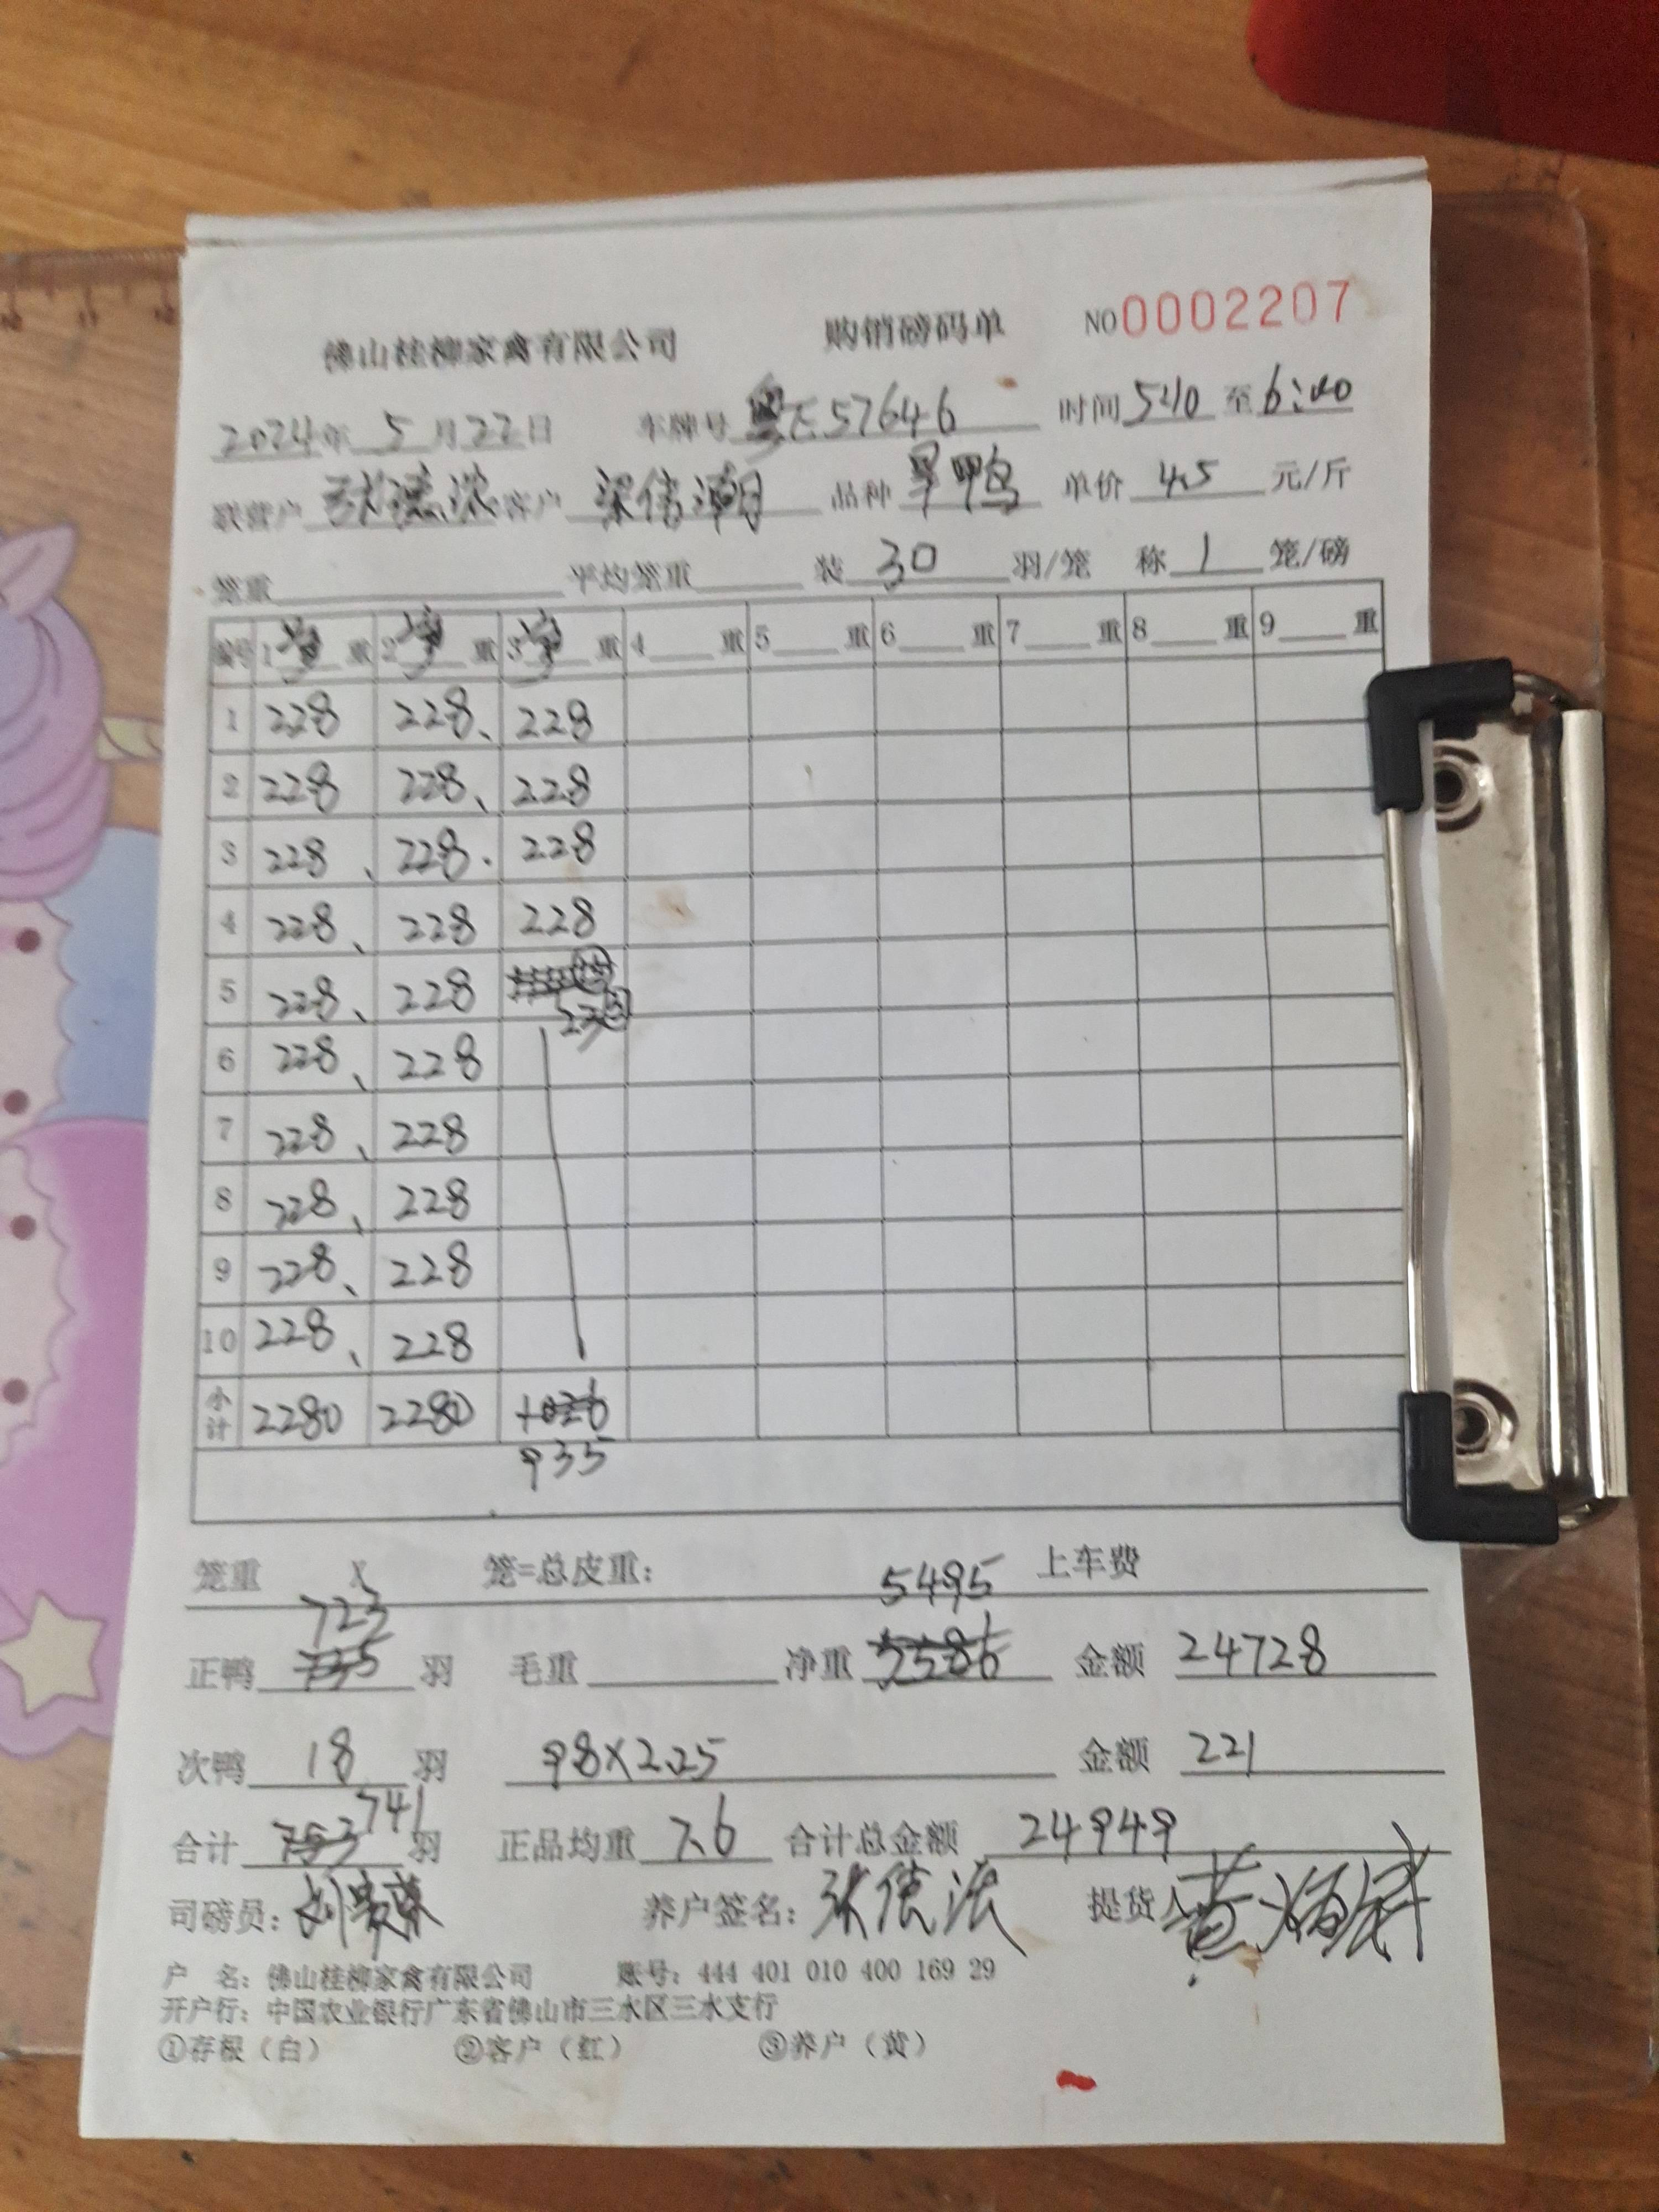 佛山桂柳家禽有限公司 购销磅码单 NO0002207
2024年 5 月 22 日 车牌号 粤E57646 时间 5:40 至 6:00
联营户 张德浓 客户 梁倩潮 品种 旱鸭 单价 4.5 元/斤
笼重 平均笼重 装 30 羽/笼 称 1 笼/磅
编号 1 净 重 2 净 重 3 净 重 4 重 5 重 6 重 7 重 8 重 9 重
1 228 228、 228
2 228 228、 228
3 228、 228. 228
4 228、 228 228
5 228、 228 23③
6 228、 228
7 228、 228
8 228、 228
9 228、 228
10 228、 228
小计 2280 2280 1026
935
笼重 X 笼=总皮重: 5495 上车费
723
正鸭 735 羽 毛重 净重 5586 金额 24728
次鸭 18 羽 98X2.25 金额 221
合计 753 741 羽 正品均重 7.6 合计总金额 24949
司磅员: 养户签名: 张德浓 提货人
户 名: 佛山桂柳家禽有限公司 账号: 444 401 010 400 169 29
开户行: 中国农业银行广东省佛山市三水区三水支行
①存根（白） ②客户（红） ③养户（黄）